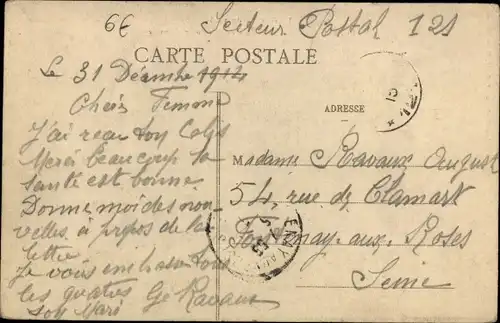 6E
Secteur Postal 121
CARTE POSTALE
Le 31 Décembre 1914
Chère Femme
ADRESSE
J'ai reçu ton Colis
Merci beaucoup ta
santé est bonne
Donne moi des nou
velles à propos de ta
lettre
Je vous embrasse tous
les quatres
Ton Mari
Ravaux
Madame Ravaux August
54, rue de Clamart
Fontenay-aux-Roses
Seine